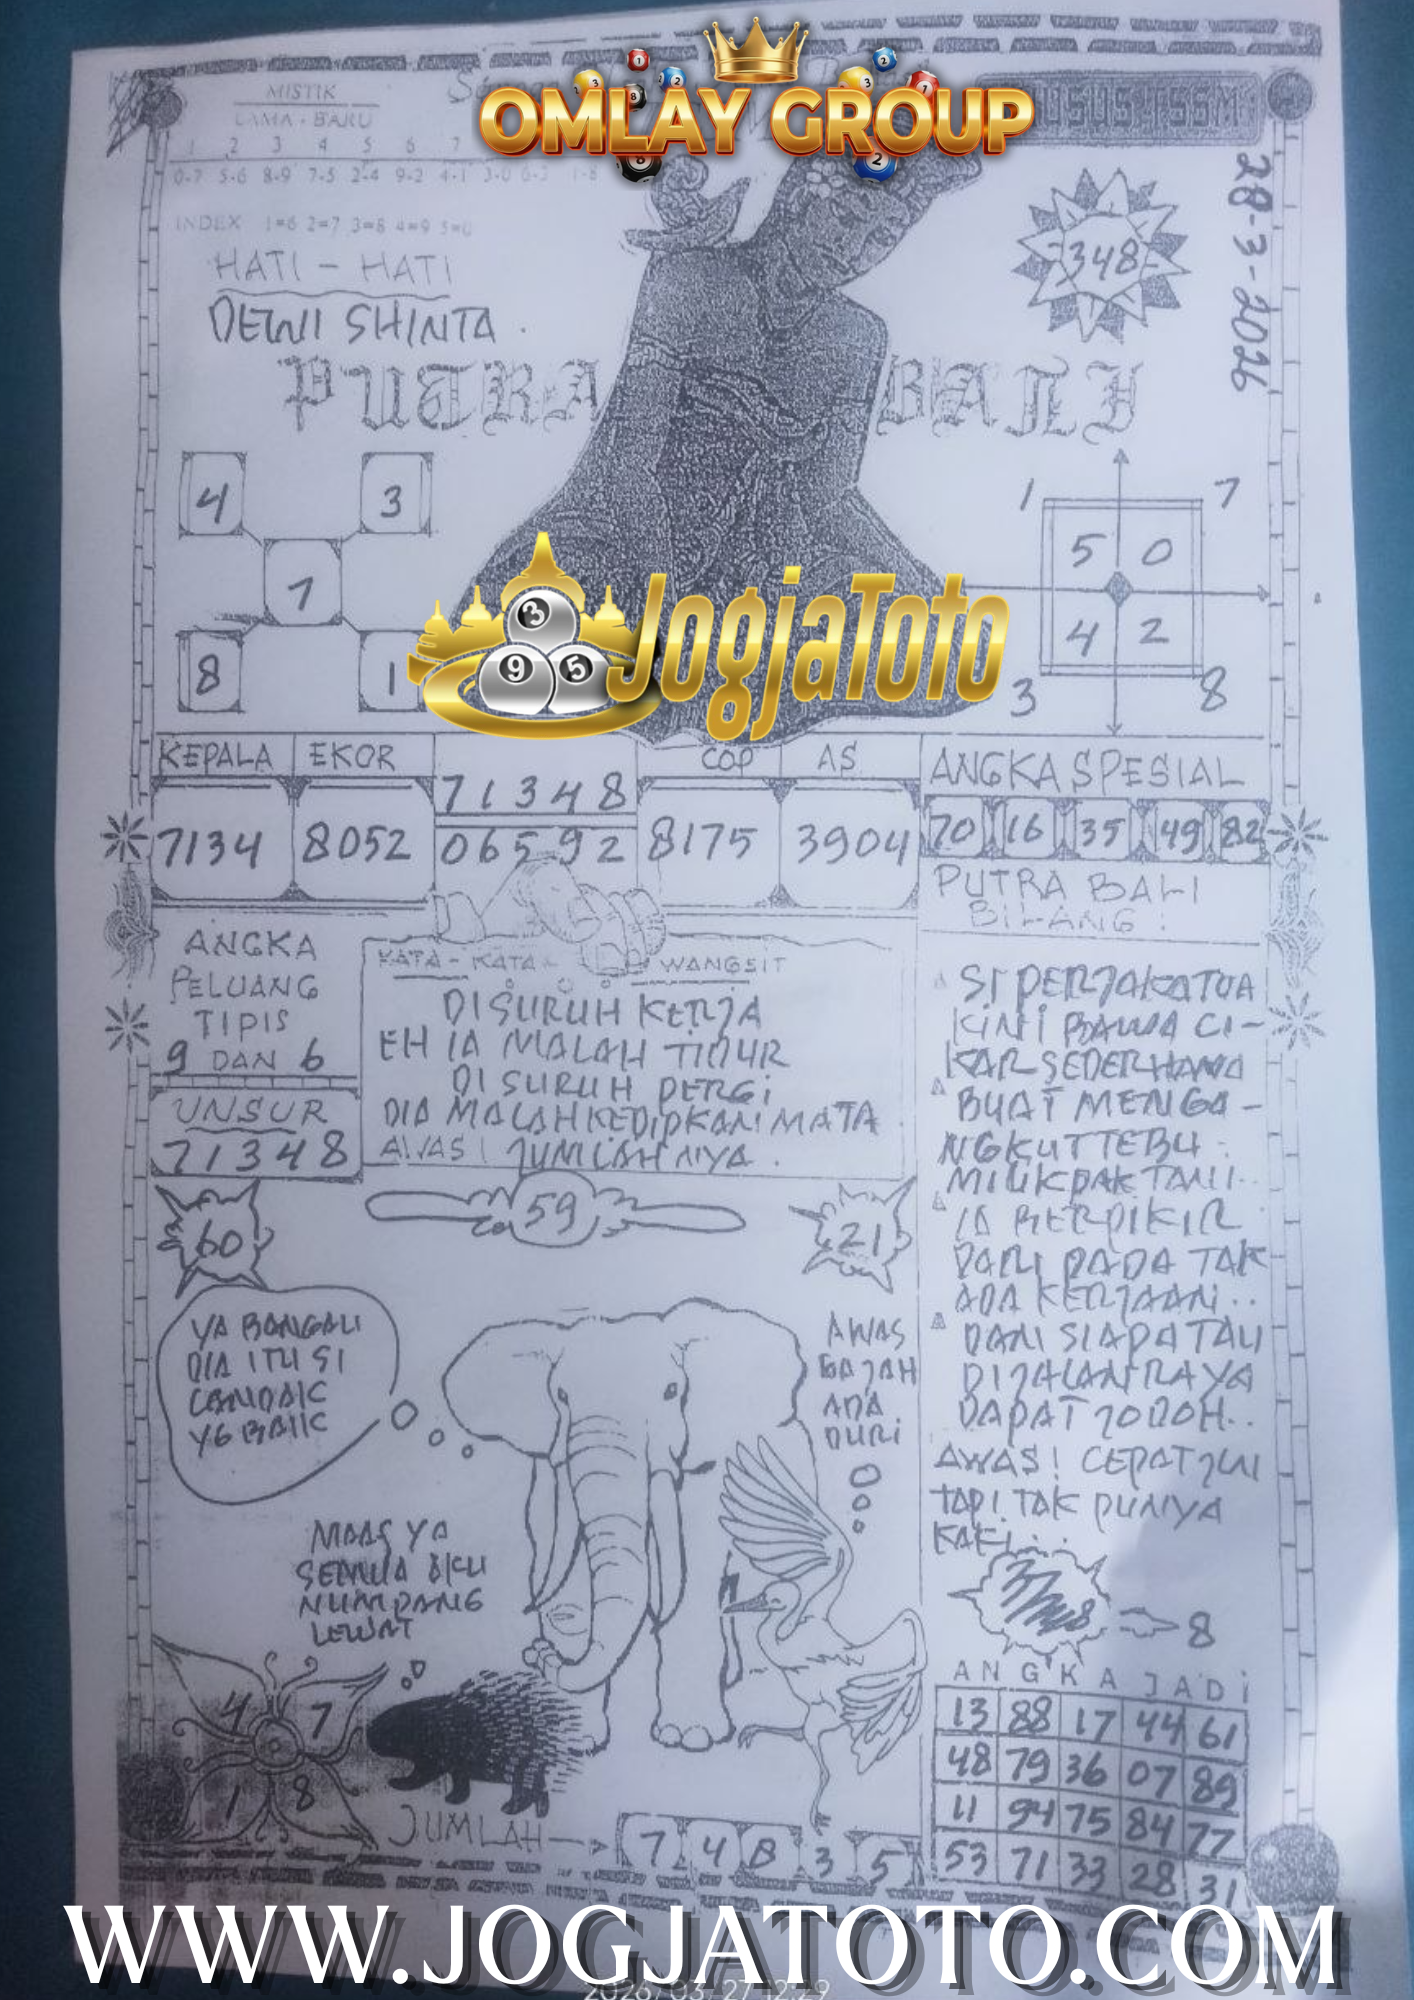 OMLAY GROUP
MISTIK
LAMA - BARU
1 2 3 4 5 6 7
0-7 5-6 8-9 7-5 2-4 9-2 4-1 3-0 6-3 1-8
INDEX 1=6 2=7 3=8 4=9 5=0
28-3-2026
348
HATI - HATI
DEWI SHINTA .
PUTRA BALI
4 3
7
8 1
1 7
5 0
4 2
3 8
JogjaToto
KEPALA EKOR COP AS
7134 8052
71348
06592
8175 3904
ANGKA SPESIAL
70 16 35 49 82
ANGKA
PELUANG
TIPIS
9 DAN 6
UNSUR
71348
KATA - KATA WANGSIT
DISURUH KERJA
EH IA MALAH TIDUR
DI SURUH PERGI
DIA MALAH KEDIPKAN MATA
AWAS! JUMLAHNYA .
PUTRA BALI
BILANG :
SI PERJAKATUA
KINI BAWA CI-
KAR SEDERHANA
BUAT MENGA-
NGKUT TEBU
MILIK PAK TANI..
IA BERPIKIR
DARI PADA TAK
ADA KERJAAN..
DAN SIAPA TAU
DIJALAN RAYA
DAPAT JODOH..
AWAS! CEPAT JUI
TAPI TAK PUNYA
KAKI...
60
59
21
YA BANGALI
DIA ITU SI
LANDAK
YG BAIK
AWAS
GAJAH
ADA
DURI
MAAS YA
SEMUA AKU
NUMPANG
LEWAT
4 7
1 8
JUMLAH
7 4 8 3 5
8
ANGKA JADI
13 88 17 44 61
48 79 36 07 89
11 94 75 84 77
53 71 33 28 31
WWW.JOGJATOTO.COM
2026/03/27 12:29